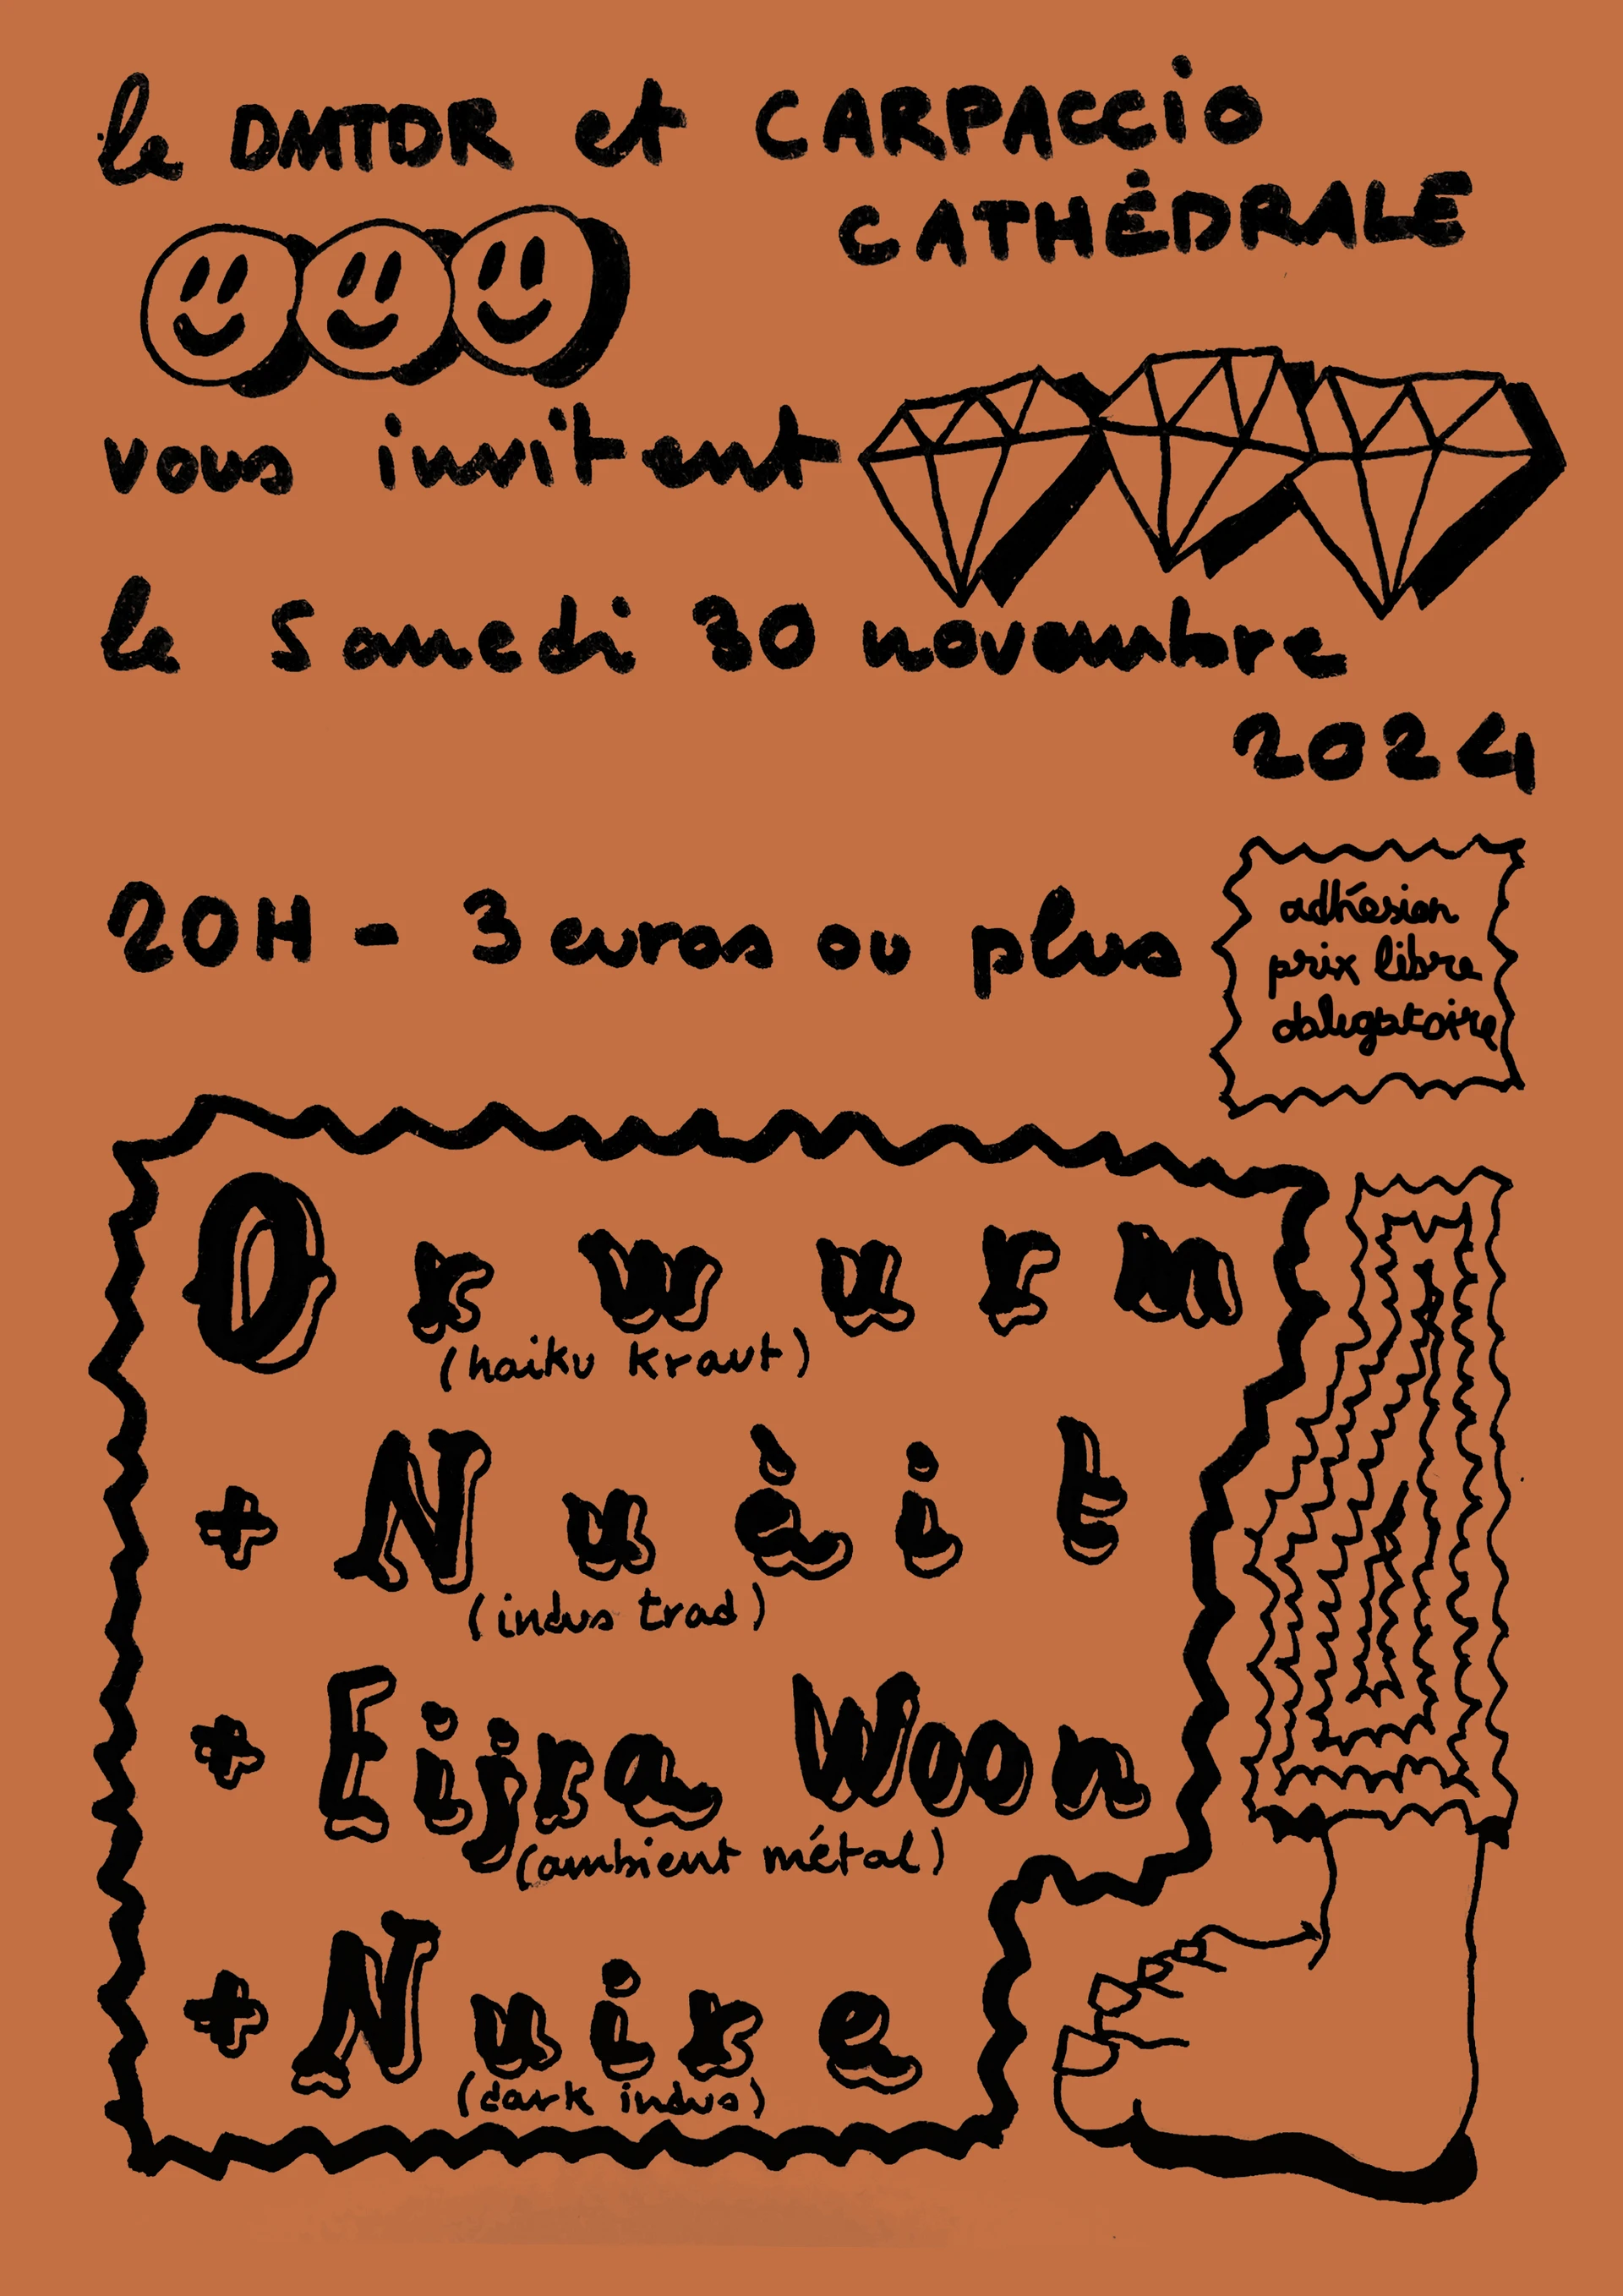 le DMTDR et CARPACCiO
CATHÉDRALE
vous invitent
le Samedi 30 novembre
2024
20H - 3 euros ou plus
adhésion
prix libre
obligatoire
Orwurm
(haiku kraut)
+ Nuèit
(indus trad)
+ Eijra Woon
(ambient métal)
+ Nuire
(dark indus)